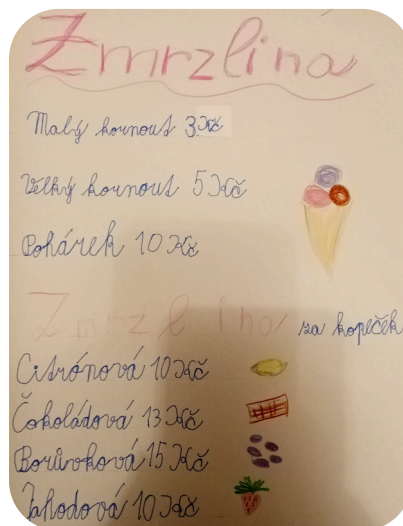 Zmrzlina
Malý kornout 3 Kč
Velký kornout 5 Kč
Pohárek 10 Kč
Zmrzlina za kopeček
Citrónová 10 Kč
Čokoládová 13 Kč
Borůvková 15 Kč
Jahodová 10 Kč